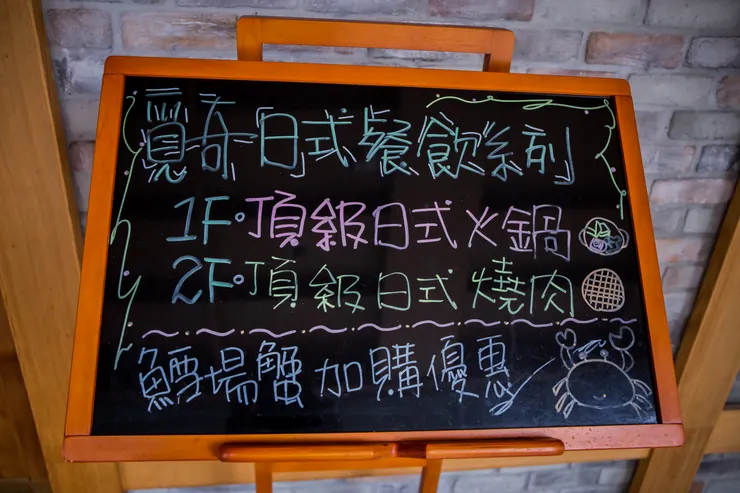 覓奇「日式餐飲系列」
1F。頂級日式火鍋
2F。頂級日式燒肉
鱈場蟹加購優惠